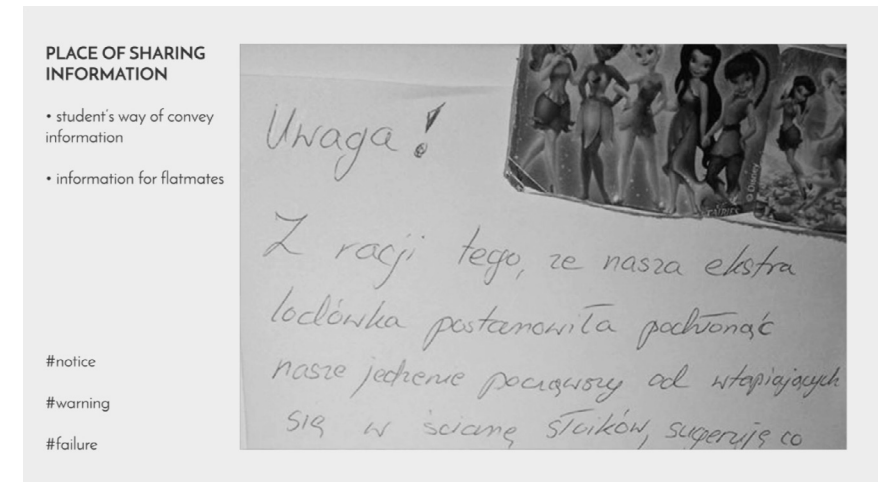 PLACE OF SHARING
INFORMATION
• student's way of convey
information
• information for flatmates
#notice
#warning
#failure
© Disney
Uwaga!
Z racji tego, ze nasza ekstra
lodówka postanowiła pochłonąć
nasze jedzenie począwszy od wtapiających
się w ścianę słoików, sugeruję co